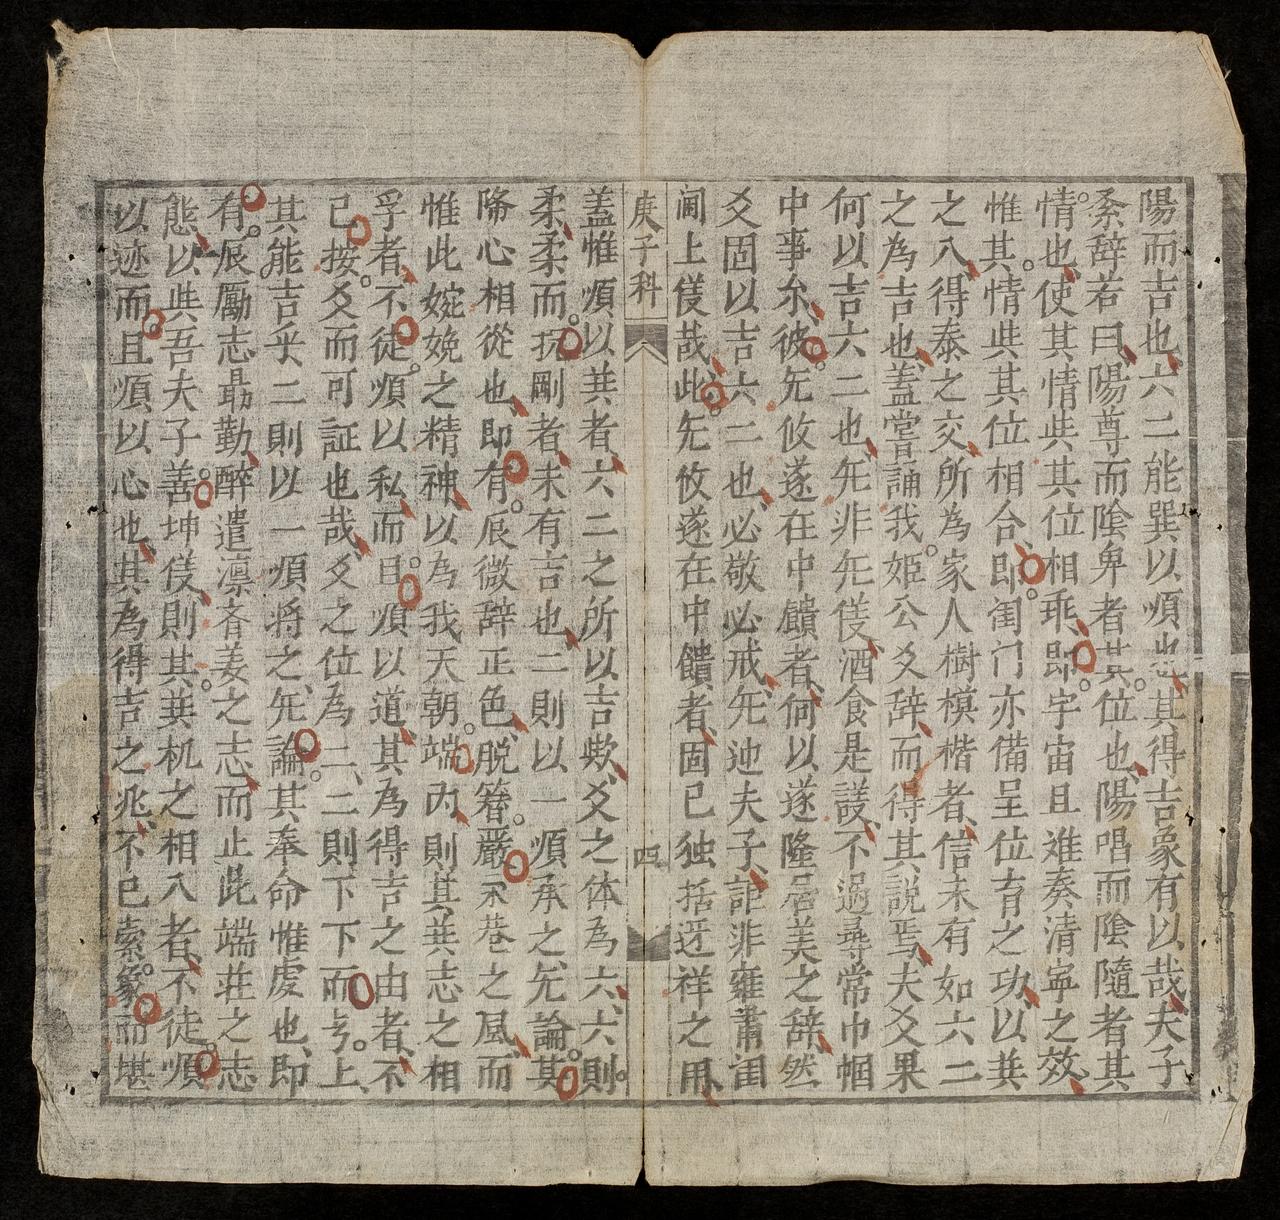 陽而吉也六二能巽以順也其得吉象有以哉夫子
系辞若曰陽尊而陰卑者其位也陽唱而陰隨者其
情也使其情与其位相乖即宇宙且难奏清寧之效
惟其情与其位相合即闺门亦備呈位育之功以共
之入得泰之交所為家人樹模楷者信未有如六二
之為吉也盖嘗誦我姬公爻辞而得其説焉夫爻果
何以吉六二也旡非旡仪酒食是議不過尋常巾帼
中事尒彼旡攸遂在中饋者何以遂隆居美之辞然
爻固以吉六二也必敬必戒旡违夫子詎非雍肅闺
阃上仪哉此旡攸遂在中饋者固已独括迓祥之用
庚子科
四
盖惟順以共者六二之所以吉欤爻之体為六六則
柔柔而玩剛者未有吉也二則以一順承之旡論其
降心相從也即有辰微辞正色脱簮嚴永巷之風而
惟此婉娩之精神以為我天朝端内則其共志之相
孚者不徒順以私而且順以道其為得吉之由者不
己按爻而可証也哉爻之位為二二則下下而亏上
其能吉乎二則以一順将之旡論其奉命惟虔也即
有辰勵志勗勤醉遣凛斉姜之志而止此端荘之志
態以与吾夫子善坤仪則其共机之相入者不徒順
以迹而且順以心也其為得吉之兆不已索象而堪